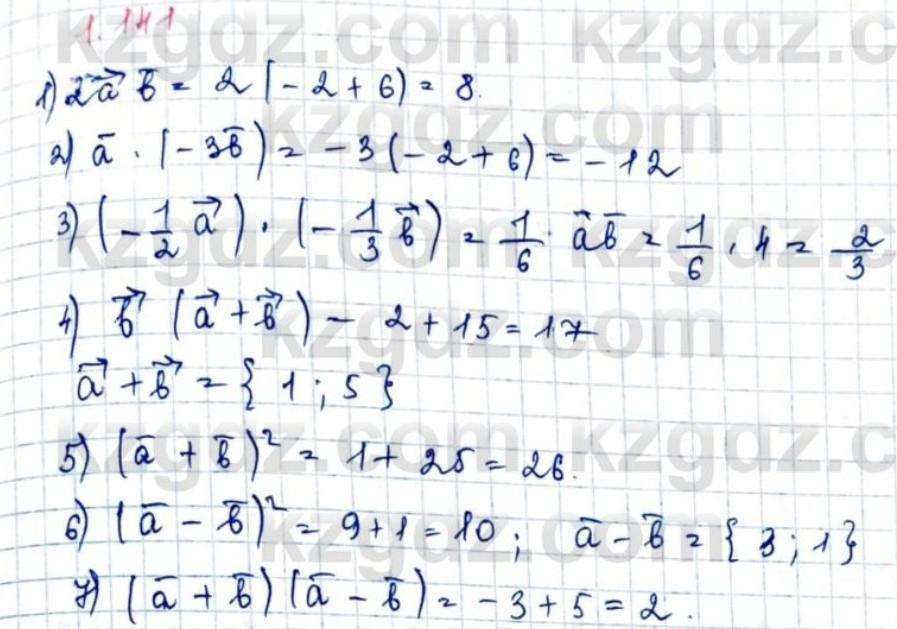 1.141
1) 2a⃗ b̄ = 2(-2+6) = 8.
2) ā · (-3b̄) = -3(-2+6) = -12
3) (-1/2 a⃗) · (-1/3 b⃗) = 1/6 · āb̄ = 1/6 · 4 = 2/3
4) b⃗ (a⃗ + b⃗) - 2+15 = 17
a⃗ + b⃗ = {1; 5}
5) (ā + b̄)² = 1+25 = 26.
6) (ā - b̄)² = 9+1 = 10; ā - b̄ = {3; 1}
7) (ā + b̄)(ā - b̄) = -3+5 = 2.
kzgdz.com kzgdz.c
kzgdz.com
kzgdz.com kzgdz.c
kzgdz.com
kzgdz.com kzgdz.c
kzgdz.com